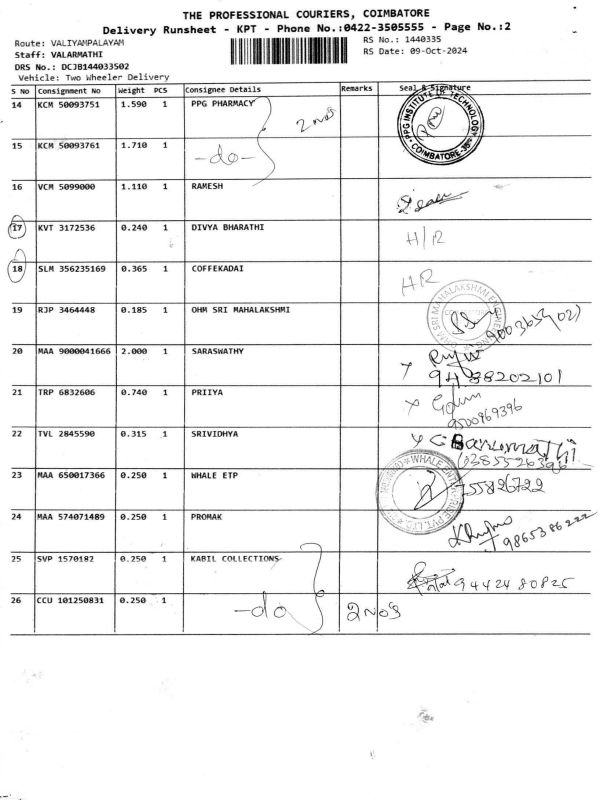 THE PROFESSIONAL COURIERS, COIMBATORE
Delivery Runsheet - KPT - Phone No.:0422-3505555 - Page No.:2
Route: VALIYAMPALAYAM RS No.: 1440335
Staff: VALARMATHI RS Date: 09-Oct-2024
DRS No.: DCJB144033502
Vehicle: Two Wheeler Delivery
S No Consignment No Weight PCS Consignee Details Remarks Seal & Signature
14 KCM 50093751 1.590 1 PPG PHARMACY 2 nos PPG INSTITUTE OF TECHNOLOGY COIMBATORE-35
15 KCM 50093761 1.710 1 -do-
16 VCM 5099000 1.110 1 RAMESH
17 KVT 3172536 0.240 1 DIVYA BHARATHI H/R
18 SLM 356235169 0.365 1 COFFEKADAI HR
19 RJP 3464448 0.185 1 OHM SRI MAHALAKSHMI OHM SRI MAHALAKSHMI ENGINEERING
20 MAA 9000041666 2.000 1 SARASWATHY x 9488202101
21 TRP 6832606 0.740 1 PRIIYA x 9500969396
22 TVL 2845590 0.315 1 SRIVIDHYA x
23 MAA 650017366 0.250 1 WHALE ETP WHALE PVT. LTD.
24 MAA 574071489 0.250 1 PROMAK 9865386222
25 SVP 1570182 0.250 1 KABIL COLLECTIONS 9442480825
26 CCU 101250831 0.250 1 -do 2 Nos